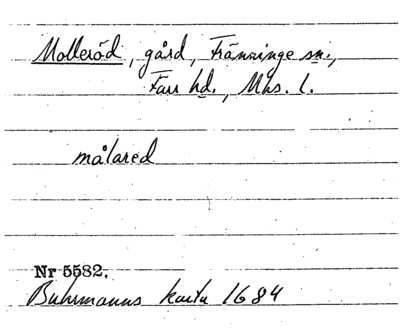 Molleröd, gård, Tränninge sn.,
Färs hd., Mhs. l.
målared
Nr 5582.
Buhrmanns karta 1684